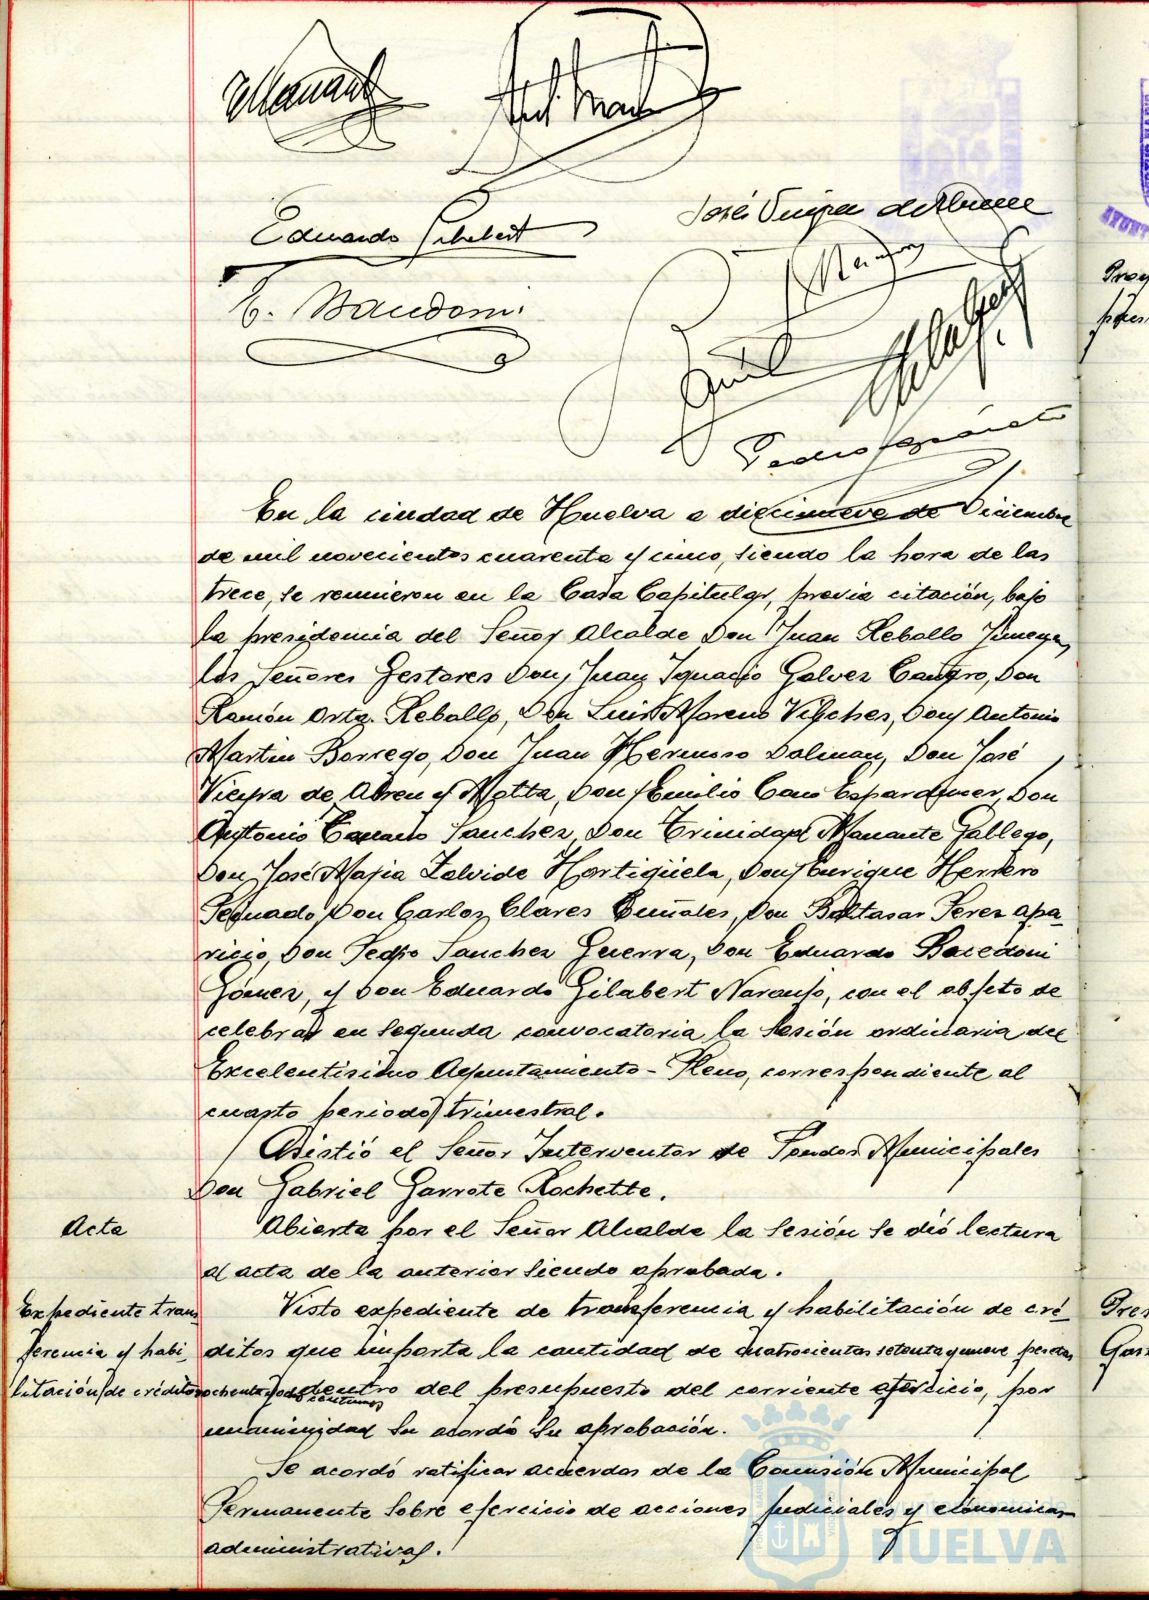 Eduardo Gilabert
José Vieyra de Abreu
E. Bacedoni
Pedro
En la ciudad de Huelva a diecinueve de Diciembre
de mil novecientos cuarenta y cinco, siendo la hora de las
trece, se reunieron en la Casa Capitular, previa citación, bajo
la presidencia del Señor Alcalde Don Juan Rebollo Jimenez,
los Señores Gestores Don Juan Ignacio Galvez Cañero, Don
Ramón Orta Rebollo, Don Luis Moreno Vilches, Don Antonio
Martin Borrego, Don Juan Hermoso Dolman, Don José
Vieyra de Abreu y Motta, Don Emilio Cano Esparducer, Don
Antonio Sanchez, Don Trinidad Manante Gallego,
Don José Maria Zalvide Hortigüela, Don Enrique Herrero
Don Carlos Clares Don Baltasar Perez Apa-
ricio, Don Pedro Sanchez Guerra, Don Eduardo Bacedoni
Gómez, y Don Eduardo Gilabert Naranjo, con el objeto de
celebrar en segunda convocatoria la sesión ordinaria del
Excelentisimo Ayuntamiento-Pleno, correspondiente al
cuarto periodo trimestral.
Asistió el Señor Interventor de Fondos Municipales
Don Gabriel Garrote Rochette.
Acta
Abierta por el Señor Alcalde la sesión se dió lectura
al acta de la anterior siendo aprobada.
Expediente trans
ferencia y habi-
litación de créditos
Visto expediente de transferencia y habilitación de cré-
ditos que importa la cantidad de cuatrocientas setenta y nueve pesetas
ochenta y dos centimos dentro del presupuesto del corriente ejercicio, por
unanimidad se acordó su aprobación.
Se acordó ratificar acuerdos de la Comisión Municipal
Permanente sobre ejercicio de acciones judiciales y económicas
administrativas.
HUELVA